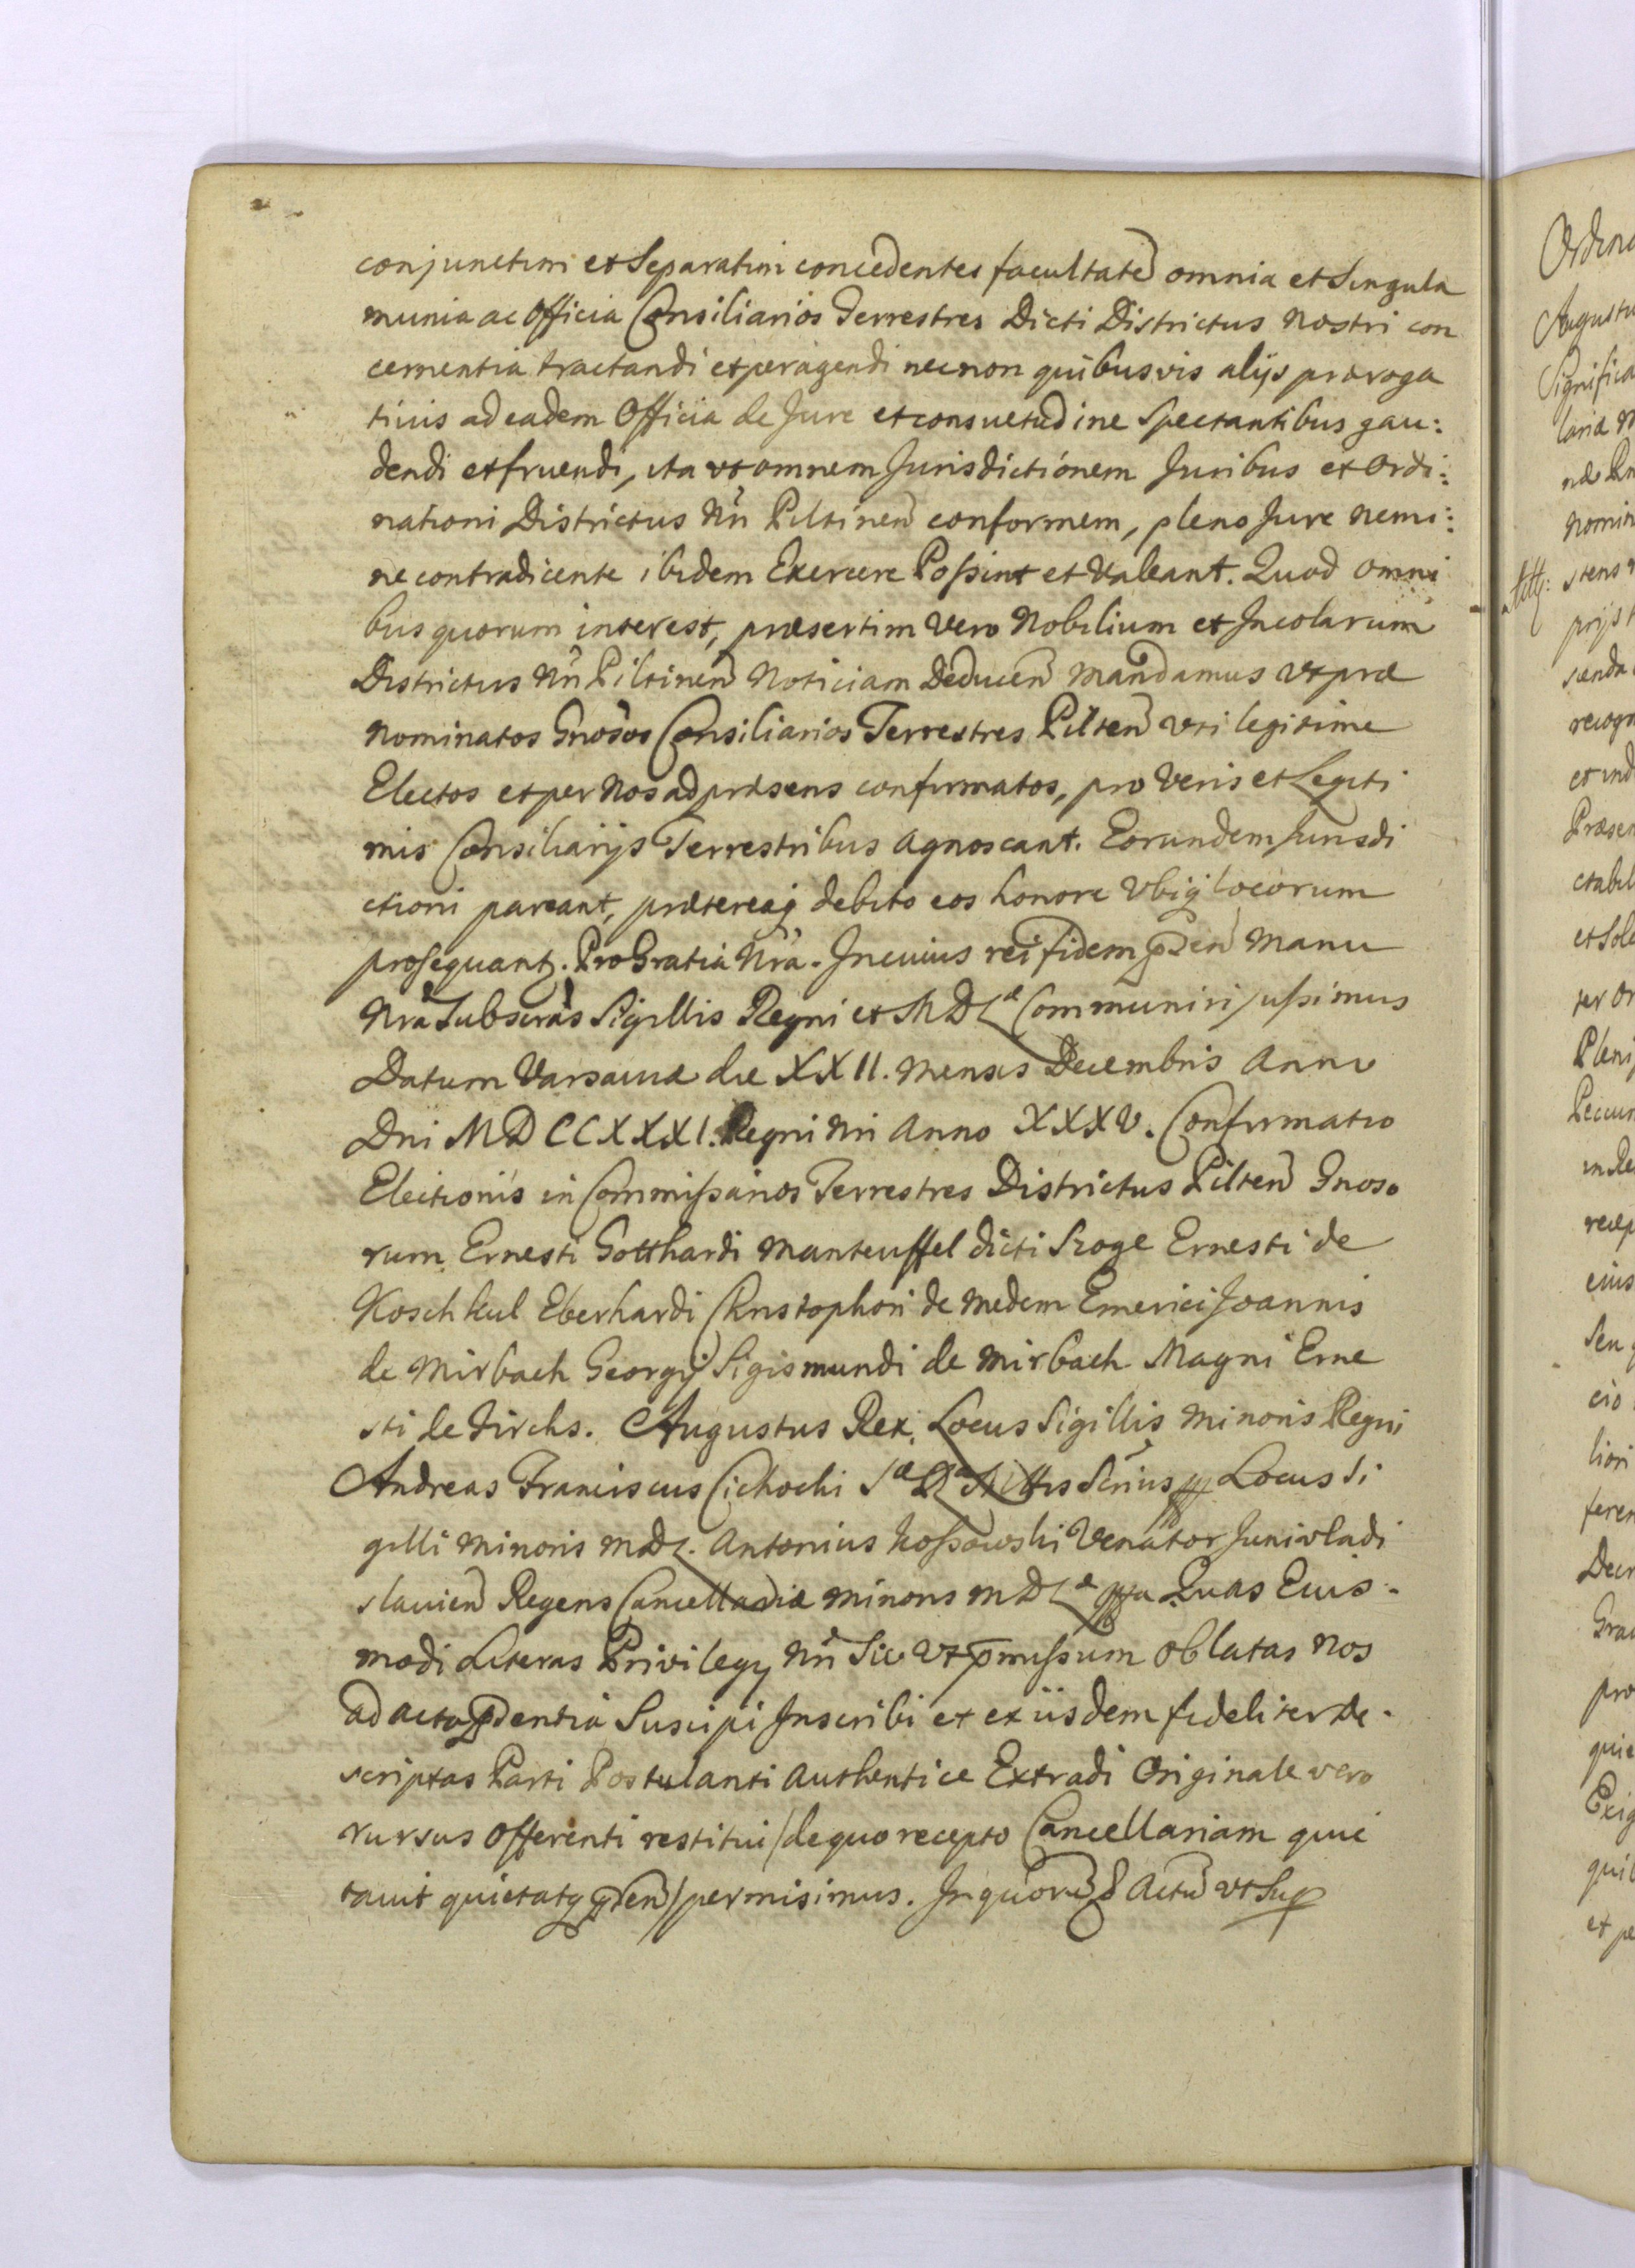 conjunctim et Separatim concedentes facultatē omnia et Singula
munia ac Officia Consiliarios Terrestres Dicti Districtus Nostri con
cernentia tractandi et peragendi necnon quibusvis alijs præroga
tiuis ad eadem Officia de Jure et consuetudine Spectantibus gau:
dendi et fruendi, ita vt omnem Jurisdictionem Juribus et Ordi:
nationi Districtus Nri Piltinen conformem, pleno Jure Nemi:
ne contradicente ibidem Exercere Poßint et Valeant. Quod Omni
bus quorum interest, præsertim Vero Nobilium et Incolarum
Districtus Nri Piltinen Noticiam Deducen Mandamus Vt præ
Nominatos Gnosos Consiliarios Terrestres Pilten vti legitime
Electos et per Nos ad præsens confirmatos, pro Veris et Legiti
mis Consiliarijs Terrestribus Agnoscant. Eorundem Jurisdi
ctioni pareant, prætereaq debito eos honore Vbiq locorum
prosequant. Pro Gratia Nra. In cuius rei fidem pden Manu
Nra Subscras Sigillis Regni et M D L Communiri jußimus
Datum Varsauiæ die XXII. Mensis Decembris Anno
Dni MDCCXXXI. Regni Nri Anno XXXV. Confirmatio
Electionis in Commißarios Terrestres Districtus Pilten Gnoso
rum Ernesti Gotthardi Manteuffel dicti Szoge Ernesti de
Koschkul Eberhardi Christophori de Medem Emerici Joannis
de Mirbach Georgij Sigismundi de Mirbach Magni Erne
sti de Firchs. Augustus Rex. Locus Sigillis Minoris Regni
Andreas Franciscus Cichocki S Rttis Scrius Locus Si
gilli Minoris MDL. Antonius Koßowski Venator Junivladi
slauien Regens Cancellariæ Minoris MDL Quas Eius-
modi Literas Privilegij Nri Sic Vt pmißum Oblatas Nos
ad acta pdentia Suscipi Inscribi et ex iisdem fideliter de-
scriptas Parti Postulanti Authentice Extradi Originale vero
rursus Offerenti restitui /de quo recepto Cancellariam quie
tauit quietatq pden/ permisimus. In quorū Actū vt Sup